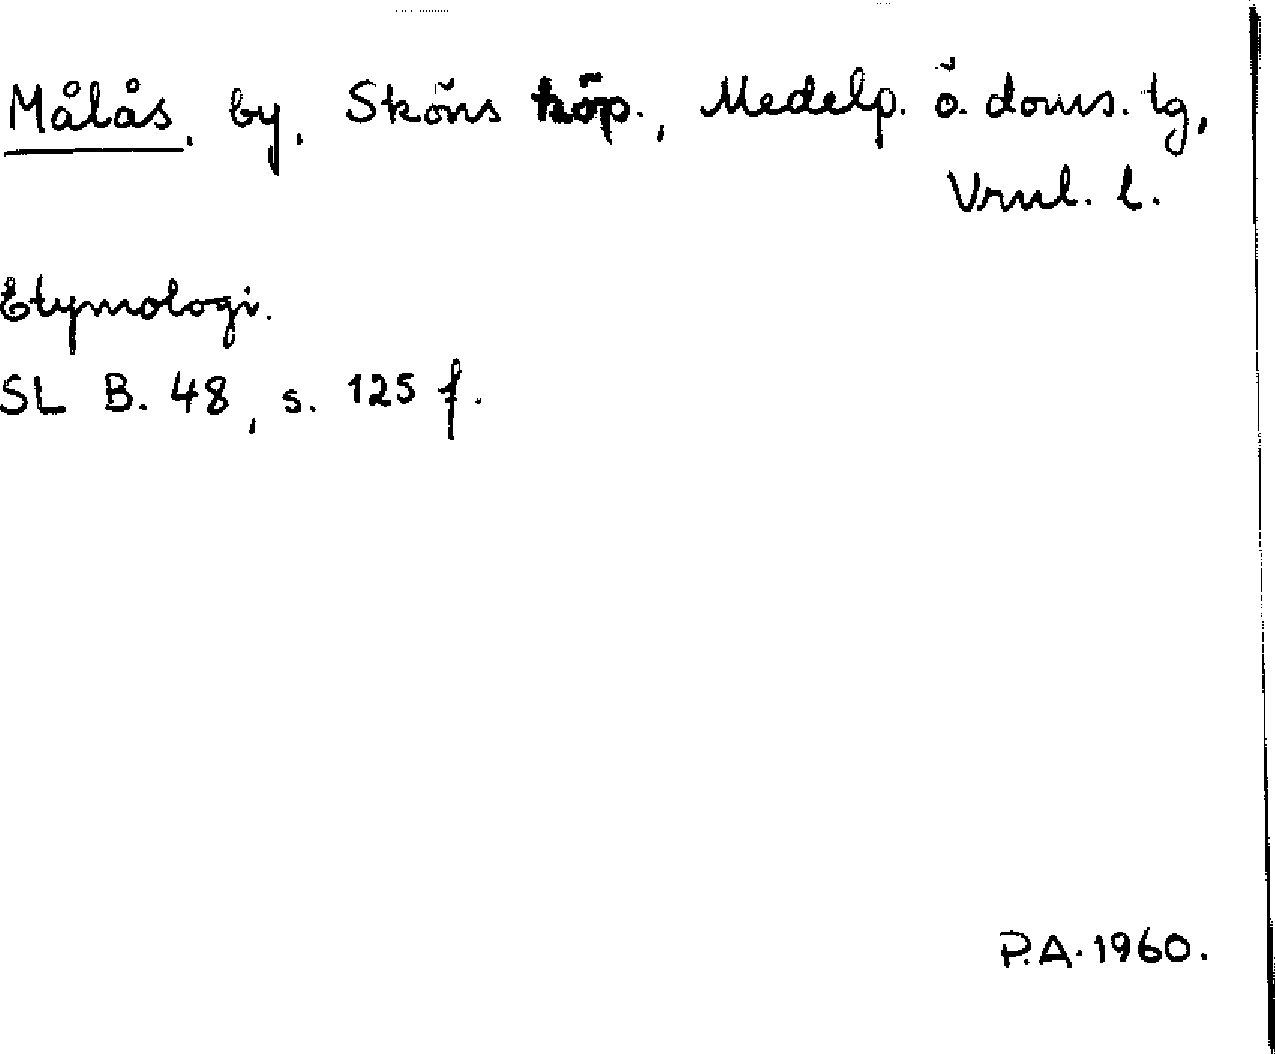 Målås, by, Sköns köp., Medelp. ö. doms. tg,
Vrnl. l.
Etymologi.
SL B. 48, s. 125 f.
P.A. 1960.